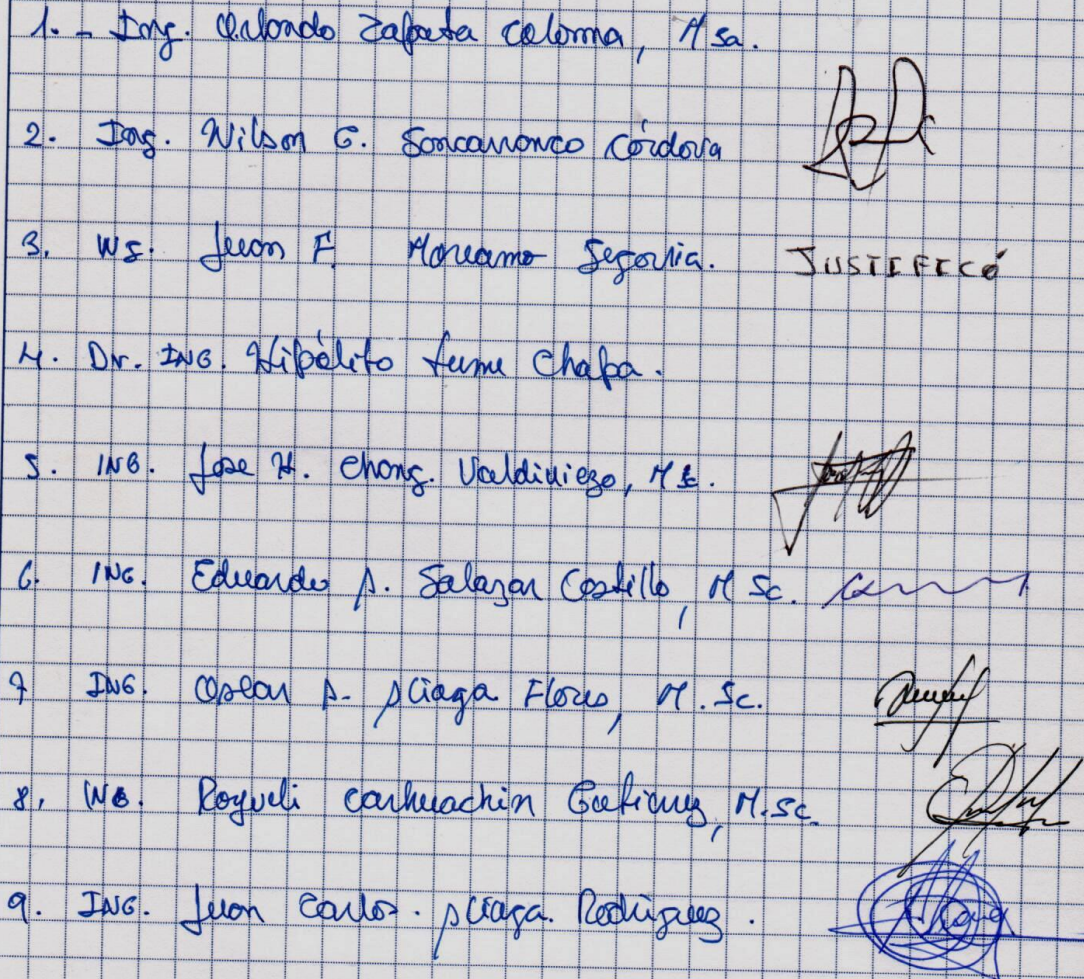 1.- Ing. Orlondo Zapata Coloma, M Sc.
2. Ing. Wilson G. Soncco Córdova
3. ING. Juan F. Moreano Segovia. JUSTIFICÓ
4. Dr. ING. Hipólito Tume Chapa.
5. ING. Jose H. Chong. Valdiviezo, M Sc.
6. ING. Eduardo A. Salazar Castillo, M Sc.
7 ING. Oscar A. Aliaga Flores, M. Sc.
8. ING. Rogueli Carhuachin Gutierrez, M.Sc.
9. ING. Juan Carlos. Aliaga. Rodriguez.